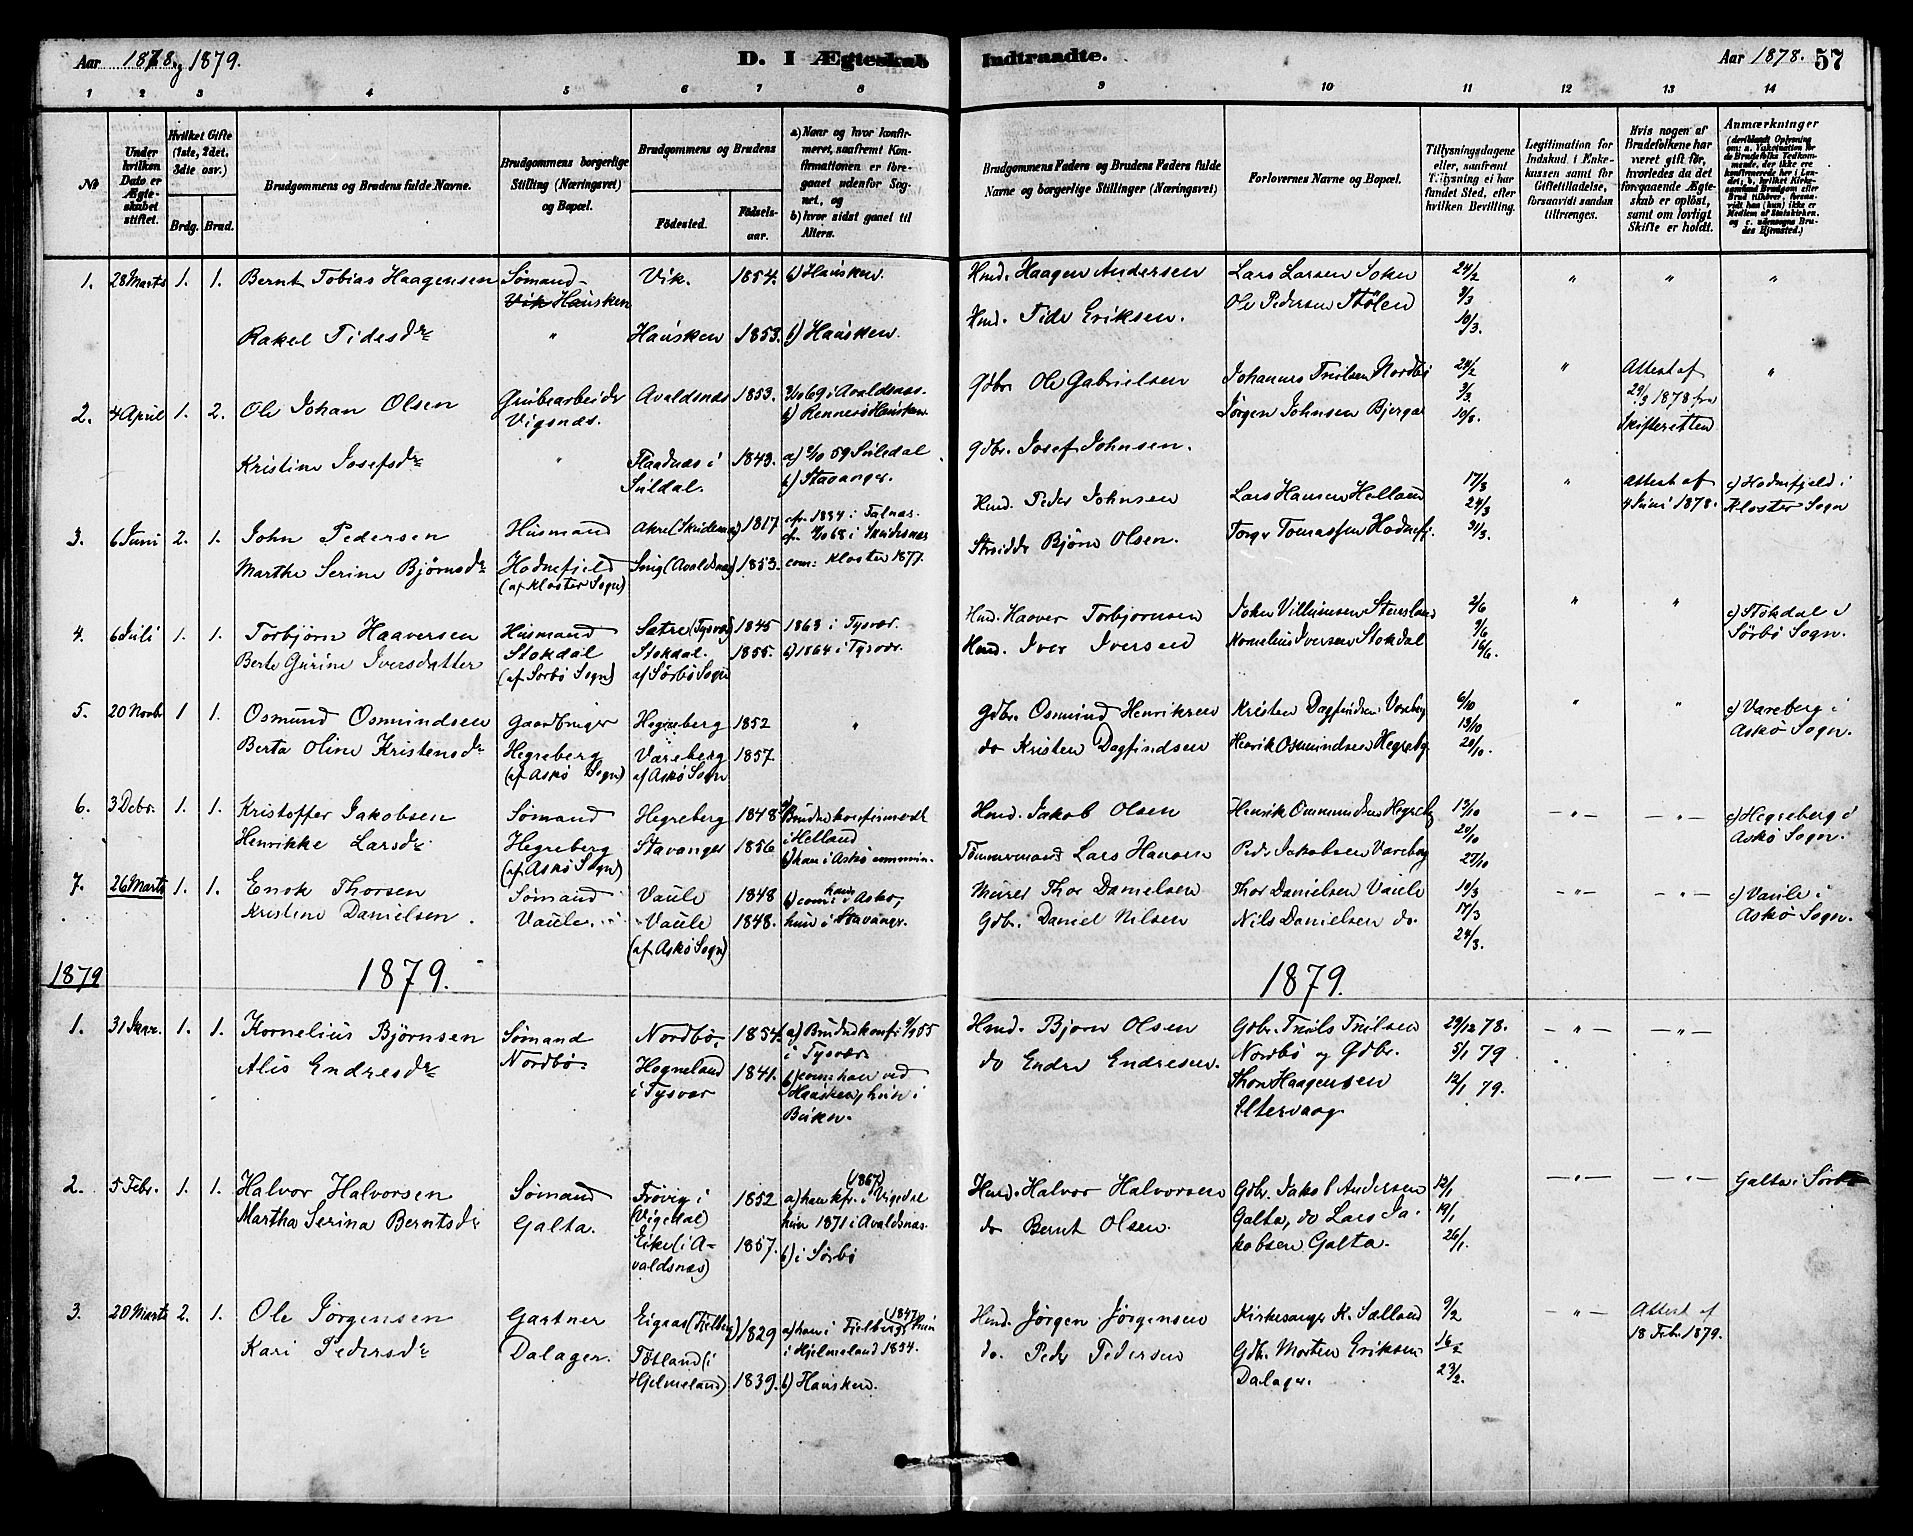 Aar 1878 og 1879.
D. I Ægteskab Indtraadte.
Aar 1878. 57
1 2 3 4 5 6 7 8 9 10 11 12 13 14
No
Under hvilken Dato er Ægteskabet stiftet.
Hvilket Gifte (1ste, 2det, 3die osv.)
Brdg. Brud.
Brudgommens og Brudens fulde Navne.
Brudgommens borgerlige Stilling (Næringsvei) og Bopæl.
Brudgommens og Brudens
Fødested. Fødselsaar.
a) Naar og hvor konfirmeret, saafremt Konfirmationen er foregaaet udenfor Sognet, og
b) hvor sidst gaaet til Alters.
Brudgommens Faders og Brudens Faders fulde Navne og borgerlige Stillinger (Næringsvei)
Forlovernes Navne og Bopæl.
Tillysningsdagene eller, saafremt Tillysning ei har fundet Sted, efter hvilken Bevilling.
Legitimation for Indskud i Enkekassen samt for Giftetilladelse, forsaavidt saadan tiltrænges.
Hvis nogen af Brudefolkene har været gift før, hvorledes da det foregaaende Ægteskab er opløst, samt om lovligt Skifte er holdt.
Anmærkninger
1. 28 Marts 1. 1. Bernt Tobias Haagensen Sømand Vik. 1854. b) Hausken Hmd. Haagen Andersen Lars Larsen Sokn 24/2 " " "
Vik Hausken Ole Pedersen Stølen 3/3
Rakel Tidesdr " Hausken 1853. b) Hausken. Hmd. Tide Eriksen. 10/3.
2. 4 April 1. 2. Ole Johan Olsen Grubearbeider Avaldsnæs 1853. 69 i Avaldsnæs. Gdbr Ole Gabrielsen Johannes Nordbø 24/2 " Attest af "
Vigsnæs. b) Rennesø Hausken Jørgen Johnsen Bjerga 3/3. 29/3 1878 fra
10/3. Skifteretten
Kristine Josefsdr " i Suldal. 1843. a) 59 Suledal b) Stavanger. Gdbr. Josef Johnsen.
3. 6 Juni 2. 1. John Pedersen Husmand Akre (Skudenæs) 1817 1834 i Falnæs. Hmd. Peder Johnsen Lars Hansen Helland 17/3 " Attest af c) Hodnefjeld i
68 i Skudesnæs 24/3 4 Juni 1878. Kloster Sogn
Marthe Serine Bjørnsdr Hodnefjeld (Avaldsnæs) 1853. com: Kloster 1877. Bjørn Olsen. Torger Tomassen Hodnefj. 31/3.
(af Kloster Sogn)
4. 6 Juli 1. 1. Torbjørn Haaversen Husmand Sætre (Tysvær) 1845 1863 i Tysvær Hmd. Haaver Torbjørnsen John Villumsen Stensland 2/6 " " c) Stokdal i
Berte Gurine Iversdatter Stokdal Stokdal. 1855. b) 1864 i Tysvær. Hmd. Iver Iversen Kornelius Iversen Stokdal 9/6 Sørbø Sogn.
(af Sørbø Sogn) af Sørbø Sogn 16/6.
5. 20 Novbr 1 1. Osmund Osmundsen Gaardbruger Hegreberg 1852 " Gdbr. Osmund Henriksen Kristen Dagfindsen Vareberg 6/10 " " c) Vareberg i
Berta Oline Kristensdr Hegreberg Vareberg 1857. do Kristen Dagfindsen Henrik Osmundsen Hegrebg 13/10 Askø Sogn.
(af Askø Sogn) af Askø Sogn 20/10.
6. 3 Debr. 1. 1. Kristoffer Jakobsen Sømand Hegreberg 1848 a) Bruden konfirmeret Hmd. Jakob Olsen Henrik Hegreberg 13/10 — " — — " — c) Hegreberg i
Henrikke Larsdr Hegreberg Stavanger 1856 i Helland Tømmermand Lars Hansen Peder Jakobsen Vareberg 20/10 Askø Sogn.
(af Askø Sogn) b) han i Askø 27/10
7. 26 Marts 1. 1. Enok Thorsen Sømand Vaule 1848 b) com: han i Askø, Murer Thor Danielsen Thor Danielsen Vaule 10/3 — " — — " — c) Vaule i
Kristine Danielsen. Vaule. Vaule 1848. hun i Stavanger. Gdbr. Daniel Nilsen Nils Danielsen do. 17/3 Askø Sogn.
(af Askø Sogn) 24/3.
1879 1879. 1879.
1. 31 Janr. 1. 1. Kornelius Bjørnsen Sømand Nordbø, 1854. a) Bruden konfr. 55 Hmd. Bjørn Olsen Gdbr. 29/12 78. — " — — " —
Alis Endresdr Nordbø. Hogneland 1841. i Tysvær do Endre Endresen. Nordbø og Gdbr. 5/1 79
i Tysvær b) com: han ved Thor Haagensen 12/1 79.
Hausken, hun i Eltervaag
Bukn.
2. 5 Febr. 1. 1. Halvor Halvorsen Sømand Frøvig i 1852 a) han kfr. (1867) i Vigedal Hmd. Halvor Halvorsen Gdbr. Jakob Andersen 12/1 — " — — " — Galta i Sørbø
Martha Serina Berntsdr Galta. (Vigedal) hun 1871 i Avaldsnæs. do Bernt Olsen. Galta, do Lars Ja- 19/1
Eike (i A- 1857. b) i Sørbø kobsen Galta. 26/1.
valdsnæs)
3. 20 Marts 2. 1. Ole Jørgensen Gartner (Fjelberg) 1829 a) han i Fjelberg (1847) hun Hmd. Jørgen Jørgensen Kirkesanger K. Salland 9/2 — " — Attest af
Kari Pedersdr Dalager. Tøtland (i i Hjelmeland 1854. do. Peder Pedersen Gdb. Morten Eriksen 16/2 18 Feb. 1879.
Hjelmeland) 1839. b) Hausken. Dalager. 23/2.